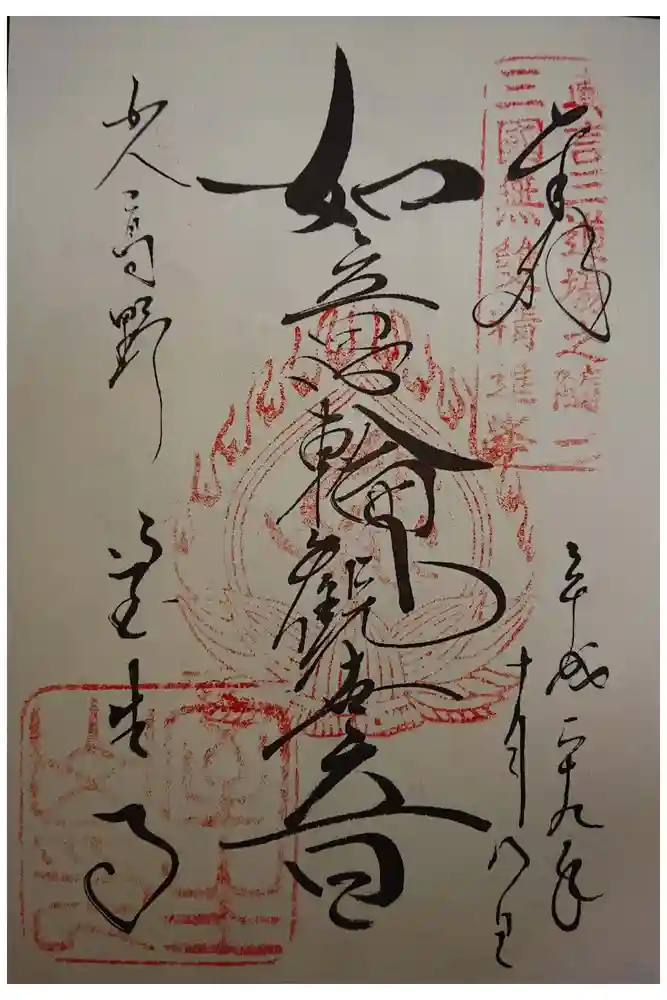 奉拝
真言三道場之随二
三國無雙橋進峯
平成二十九年
十月八日
如意輪観世音
女人高野
室生寺